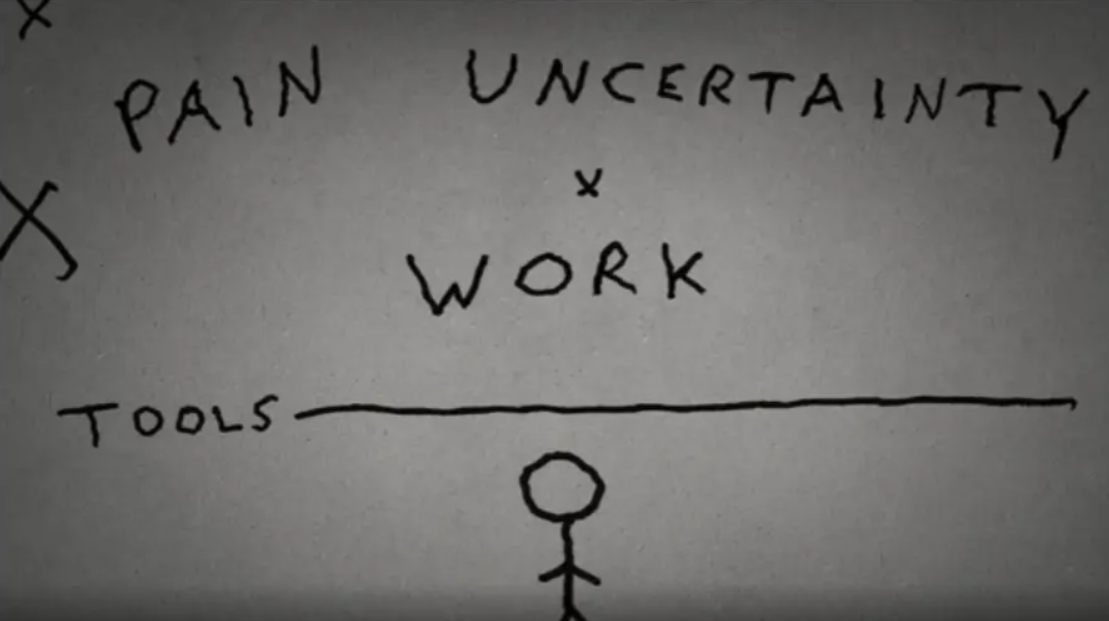 X
PAIN UNCERTAINTY
X
X
WORK
TOOLS